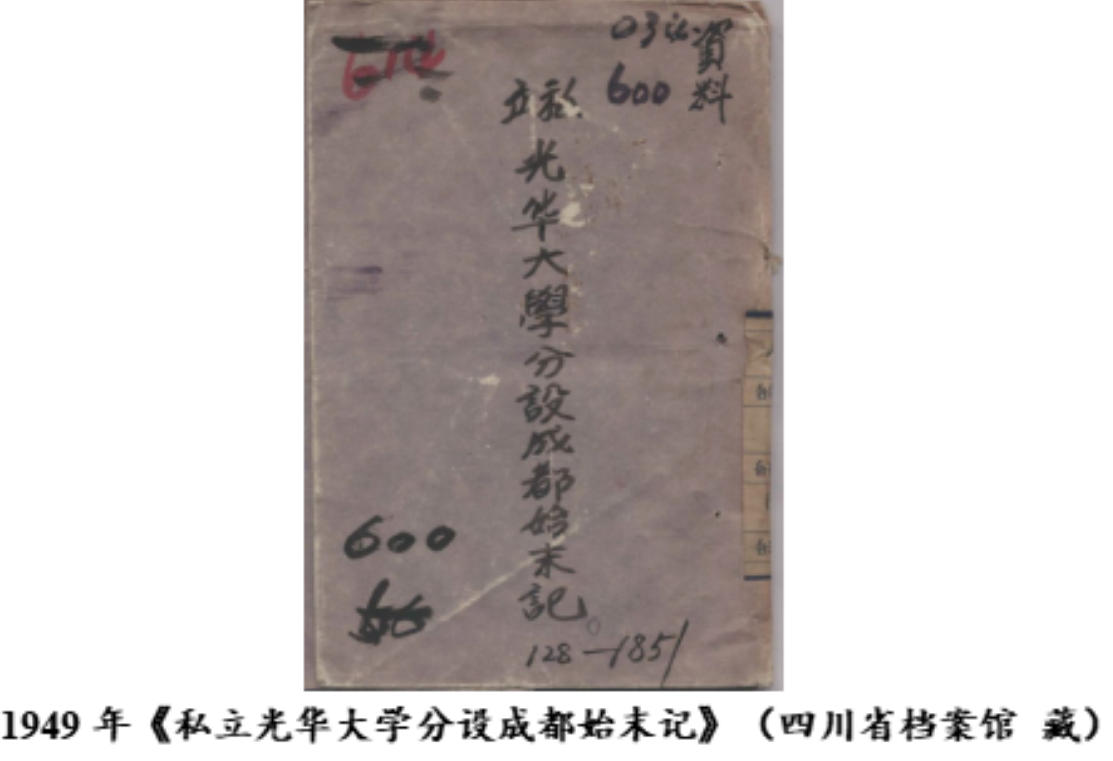 資料
03
600
立私
光华大學分設成都始末記
600
128-185
1949 年《私立光华大学分设成都始末记》（四川省档案馆 藏）